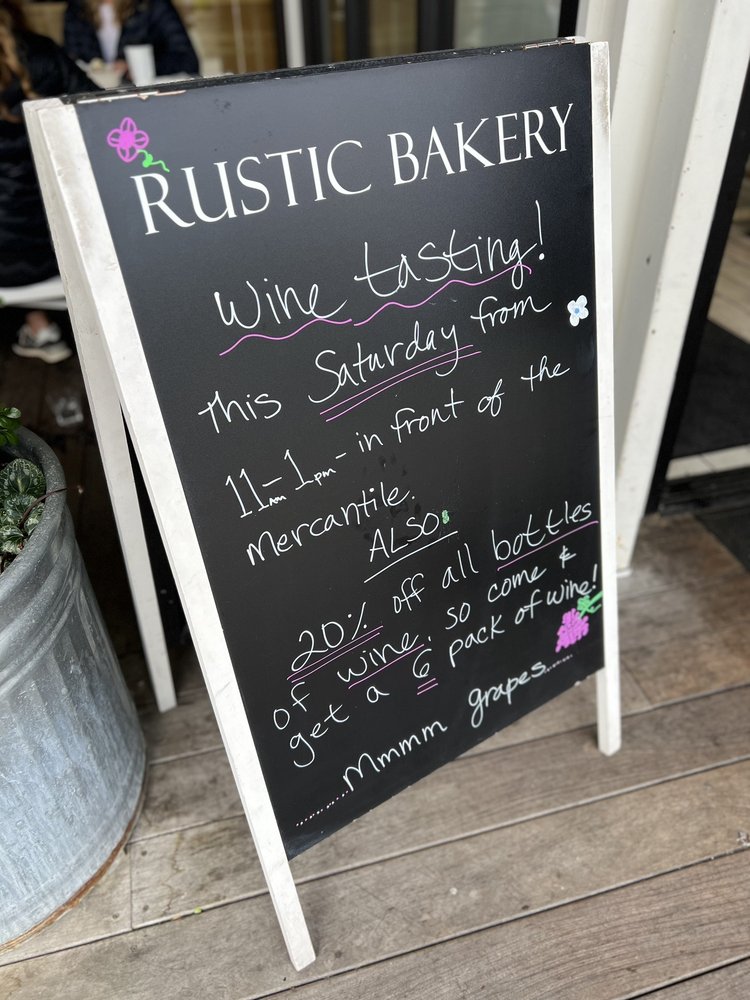 RUSTIC BAKERY
Wine tasting!
This Saturday from
11am-1pm- in front of the
mercantile.
ALSO:
20% off all bottles
of wine, so come &
get a 6 pack of wine!
.......Mmmm grapes.......